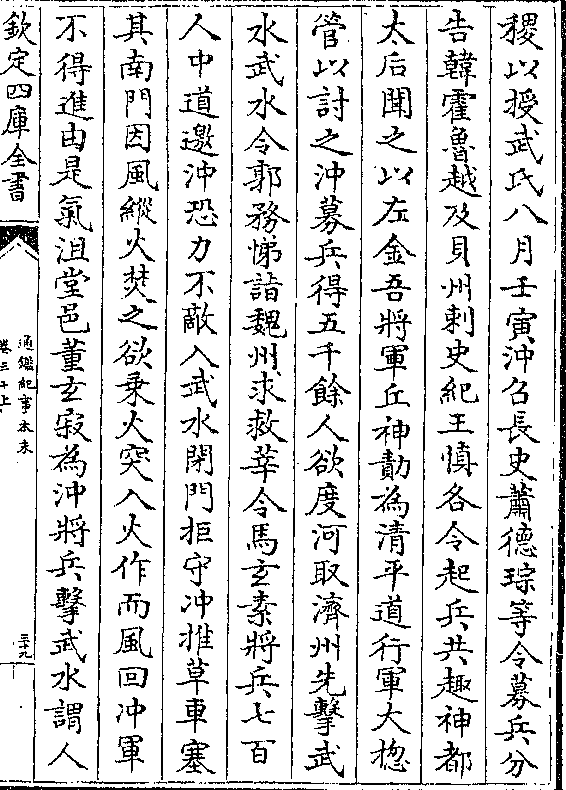 稷以授武氏八月壬寅沖召長史蕭德琮等令募兵分
告韓霍魯越及貝州刺史紀王慎各令起兵共趣神都
太后聞之以左金吾將軍丘神勣為清平道行軍大揔
管以討之沖募兵得五千餘人欲度河取濟州先擊武
水武水令郭務悌詣魏州求救莘令馬玄素將兵七百
人中道邀沖恐力不敵入武水閉門拒守沖推草車塞
其南門因風縱火焚之欲乗火突入火作而風回沖軍
不得進由是氣沮堂邑董玄寂為沖將兵擊武水謂人
欽定四庫全書
通鑑紀事本末
卷三十上
三十九